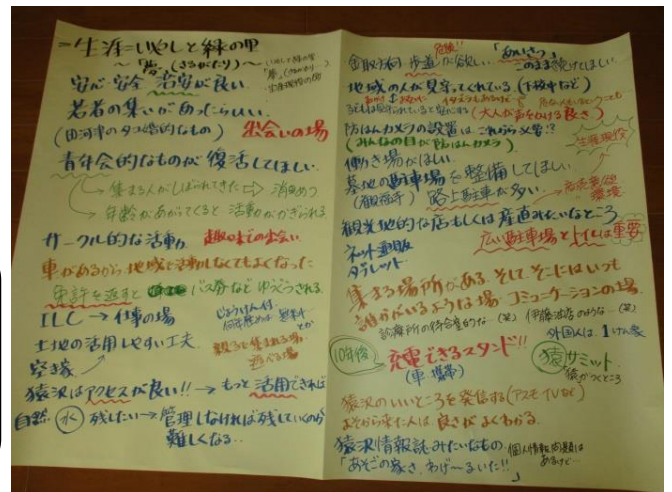 生涯=いやしと緑の里
～「夢」(さるがたり)～
安心・安全 治安が良い
若者の集いがあったらいい。
(田河津のタコ婚的なもの) 出会いの場
青年会的なものが復活してほしい
集まる人がしばられてきた⇨ 消めつ
年齢があがってくると 活動がかぎられる
サークル的な活動 趣味での出会い
車があるから地域で活動しなくてもよくなった
免許を返すと バス券など ゆうぐうされる
ILC → 仕事の場
土地の活用しやすい工夫
無料とか
空き家
親子で集まれる場
遊べる場
猿沢はアクセスが良い!! → もっと活用できれば
自然 水 残したい→管理しなければ残していくのが
難しくなる…
危険!!
金取方向 歩道が欲しい
「あいさつ」
このまま続けてほしい
地域の人が見守ってくれている(下校中など)
(大人が声をかける良さ)
防はんカメラの設置は これから必要!?
(みんなの目が防はんカメラ)
生涯現役
働き場がほしい
墓地の駐車場を整備してほしい
(観福寺) 路上駐車が多い
環境
観光地的な店もしくは産直みたいなところ
広い駐車場とトイレは重要
ネット通販
タブレット
集まる場所がある。そして、そこにはいつも
誰かがいるような場 コミュニケーションの場
診療所の待合室的な…(笑) 伊藤酒店のような…(笑)
外国人は、1けん家
10年後 充電できるスタンド!!
(車・携帯)
猿サミット
猿がつくところ
猿沢のいいところを発信する(アスモTVなど)
よそから来た人は、良さがよくわかる。
猿沢情報誌みたいなもの
個人情報問題は
あるけど…
「あそこの家さ、わげ～るいた!!」